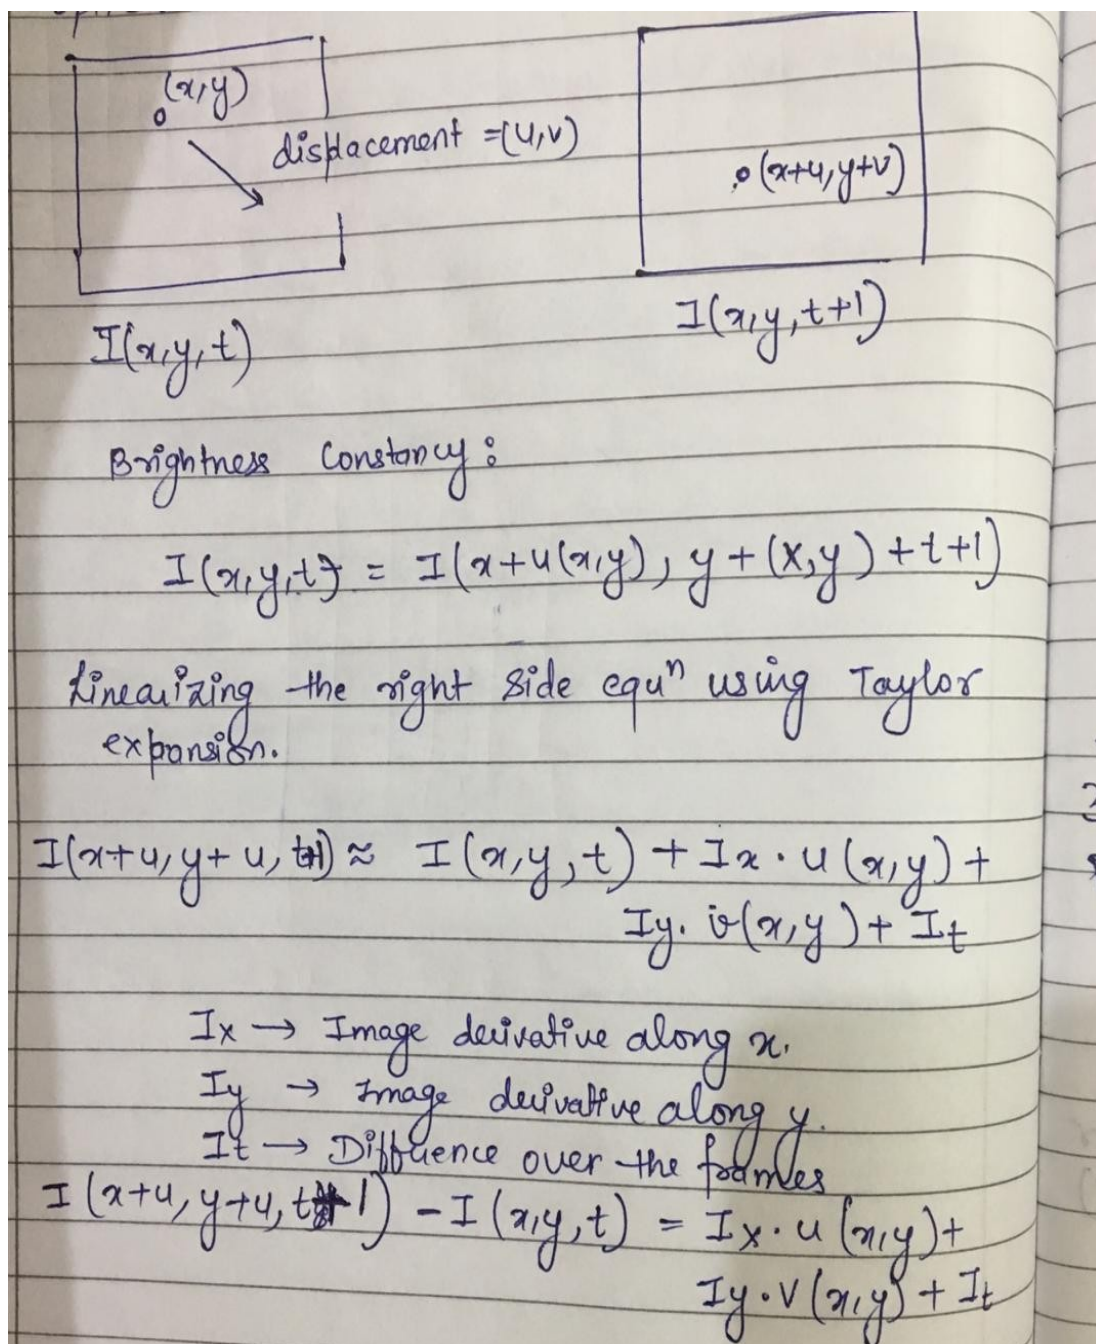 (x,y)
displacement = (u,v)
(x+u, y+v)
I(x,y,t)
I(x,y,t+1)
Brightness Constancy:
I(x,y,t) = I(x+u(x,y), y+(x,y)+t+1)
Linearizing the right side equⁿ using Taylor
expansion.
I(x+u, y+u, t+1) ≈ I(x,y,t) + Ix · u(x,y) +
Iy. v(x,y) + It
Ix → Image derivative along x.
Iy → Image derivative along y.
It → Diffuence over the frames
I(x+u, y+u, t+1) - I(x,y,t) = Ix · u(x,y) +
Iy · v(x,y) + It